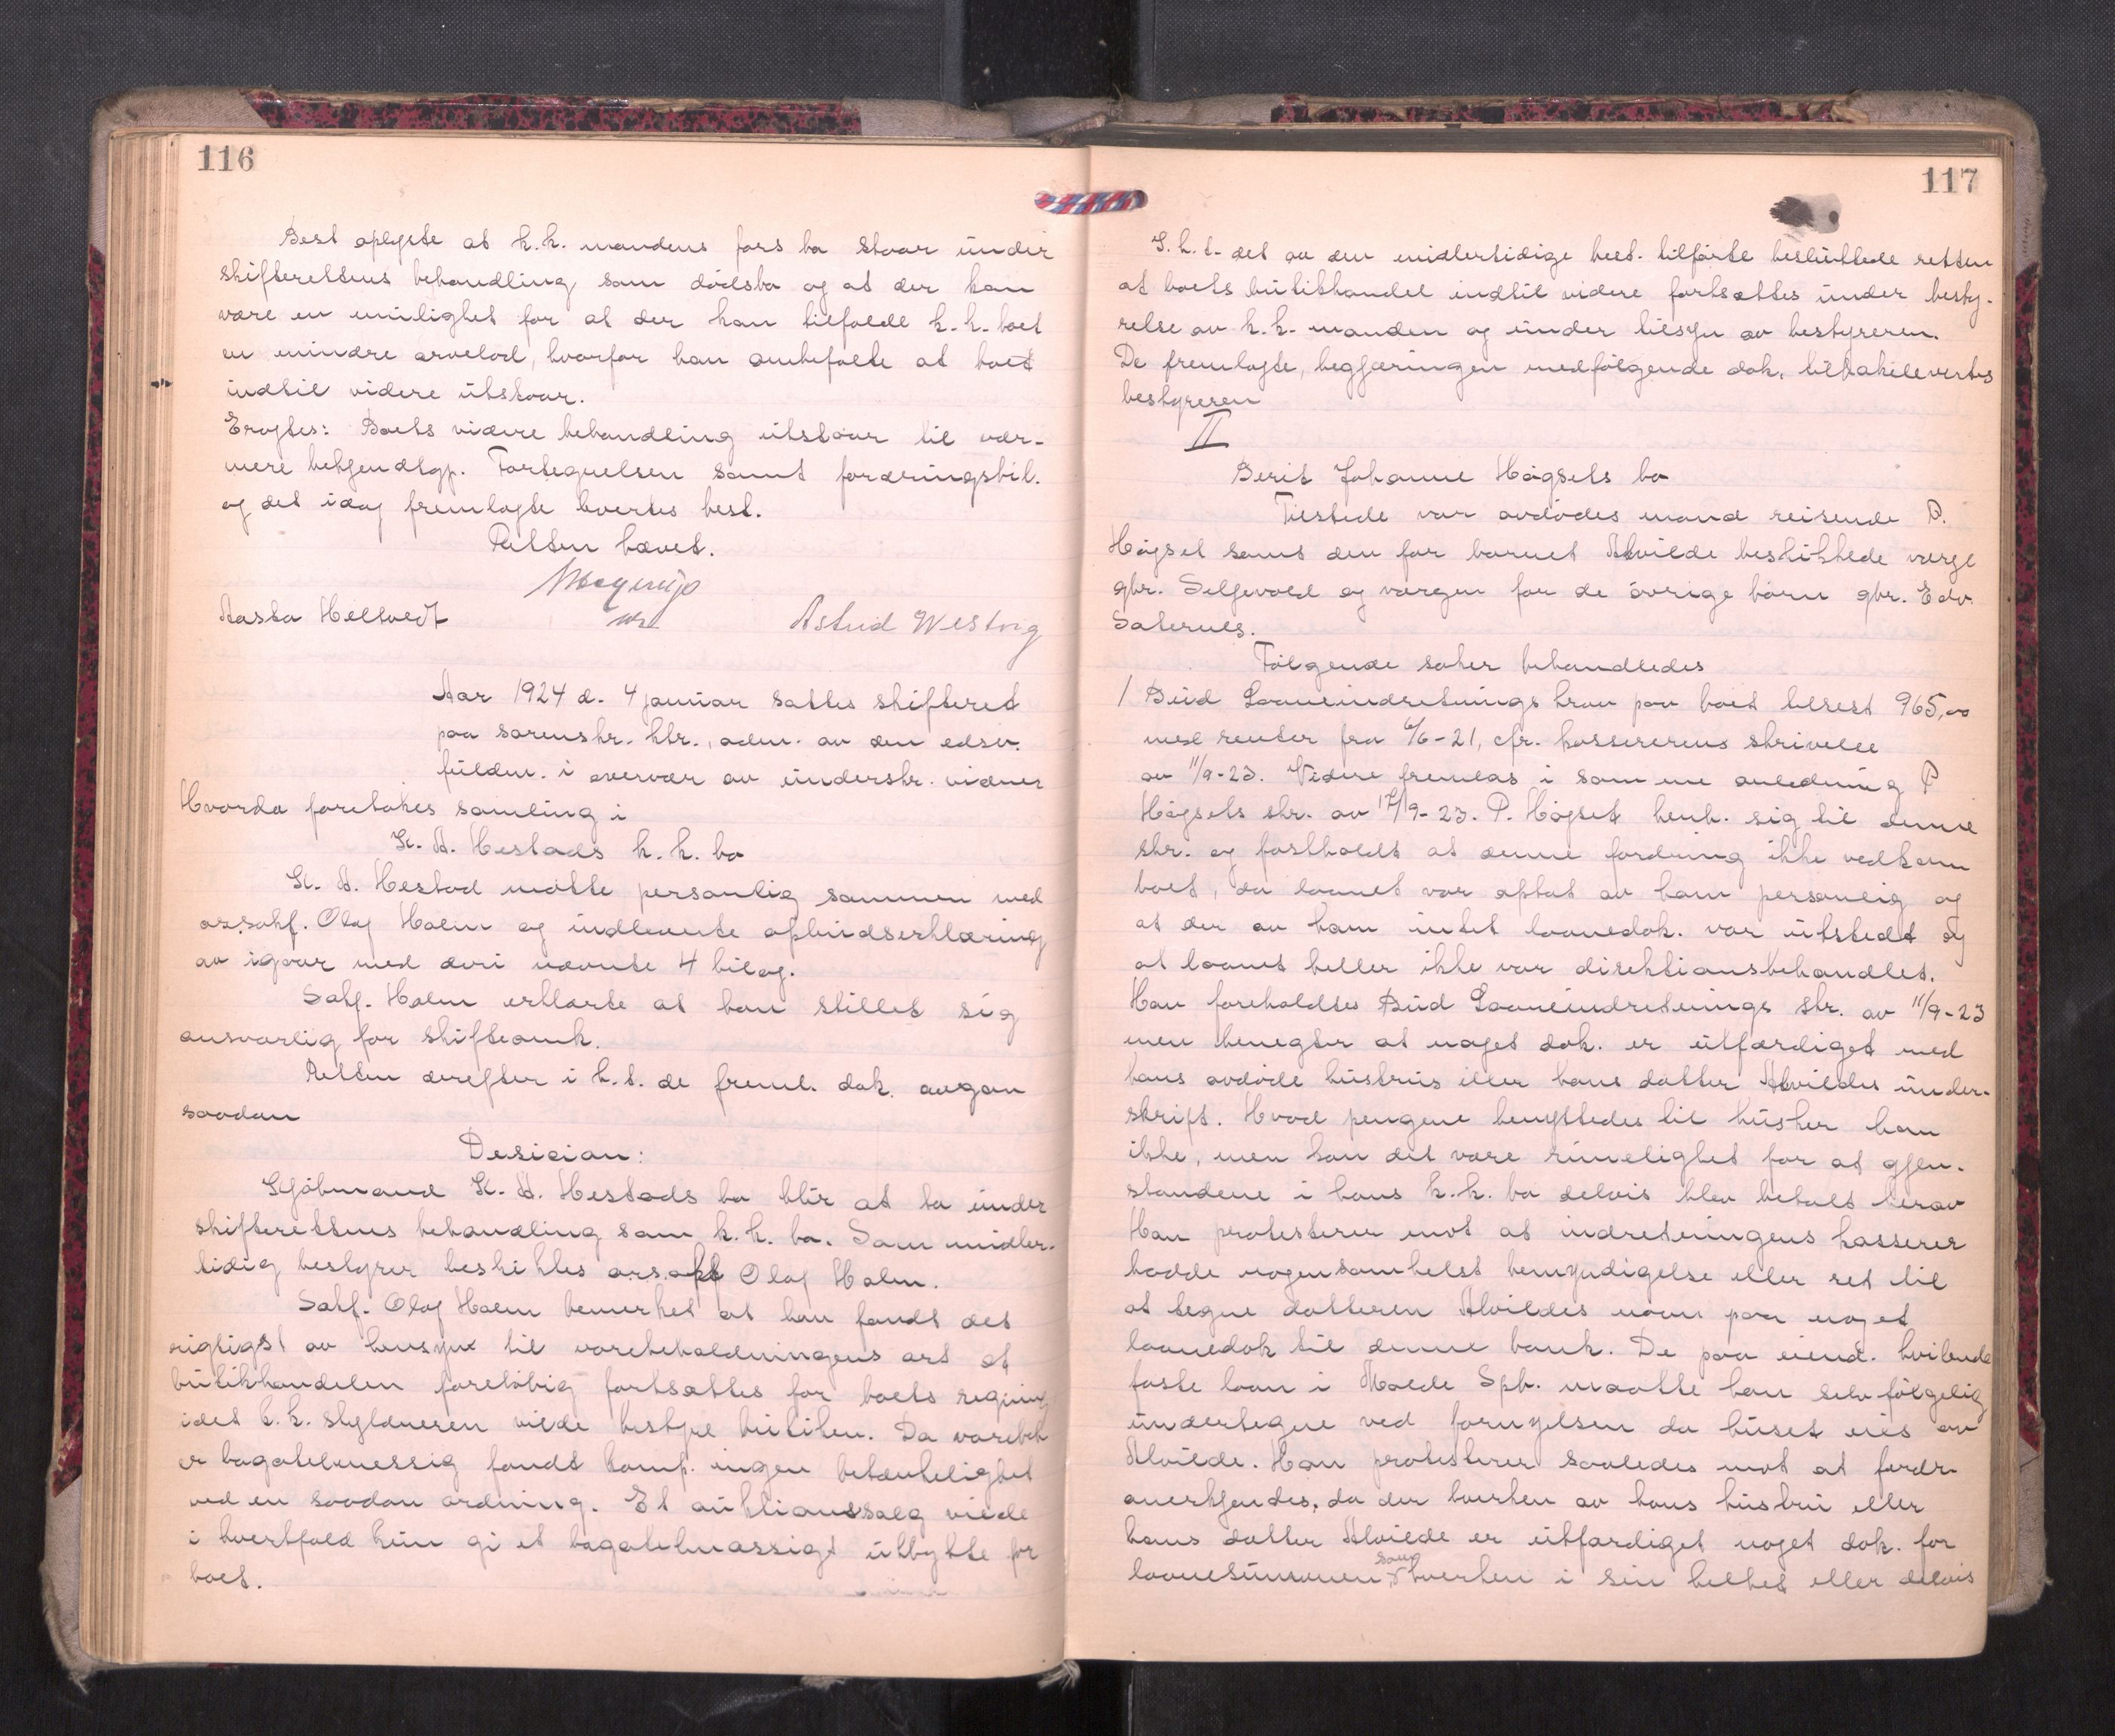 116
Best oplyste at k.k. mandens fars bo staar under
skifterettens behandling som dödsbo og at der kan
være en mulighet for at der kan tilfalde k.k. boet
en mindre arvelod, hvorfor han anbefalte at boet
indtil videre utstaar.
Eragtes: Boets videre behandling utstaar til nær-
mere bekjendtgj. Fortegnelsen samt fordringsbil.
og det idag fremlagte levertes best.
Retten hævet.
Aasta Heltvedt Astrid Westvig
Aar 1924 d. 4 januar sattes skifteret
paa sorenskr. ktr., adm. av den edsv.
fuldm. i overvær av underskr. vidner
Hvorda foretokes samling i
K. A. Hestads k. k. bo
K. A. Hestad mötte personlig sammen med
o.r.sakf. Olaf Holm og indleverte opbudserklæring
av igaar med deri nævnte 4 bilag.
Sakf. Holm erklærte at han stillet sig
ansvarlig for skifteomk.
Retten derefter i h.t. de freml. dok. avgav
saadan
Desision:
Kjöbmand K. A. Hestads bo blir at ta under
skifterettens behandling som k. k. bo. Som midler-
tidig bestyrer beskikkes o.r.sakf Olaf Holm.
Sakf. Olaf Holm bemerket at han fandt det
rigtigst av hensyn til varebeholdningens art at
butikhandelen forelöbig fortsættes for boets regning
idet k.k. skyldneren vilde bestyre butiken. Da varebeh
er bagatelmessig fandt komp. ingen betænkelighet
ved en saadan ordning. Et auktionssalg vilde
i hvertfald kun gi et bagatelmæssigt utbytte for
boet.
117
I. h. t. det av den midlertidige best. tilförte besluttede retten
at boets butikhandel indtil videre fortsættes under besty-
relse av k.k. manden og under tilsyn av bestyreren.
De fremlagte, begjæringen medfölgende dok. tilbakelevertes
bestyreren
II
Berit Johanne Högsets bo
Tilstede var avdödes mand reisende P.
Högset samt den for barnet Alvilde beskikkede verge
gbr. Seljevold og vergen for de övrige börn gbr. Edv.
Sakernes.
Fölgende saker behandledes
1 Bud Laaneindretnings krav paa boet levest 965,00
med renter fra 6/6-21, cfr. kassererens skrivelse
av 11/9-23. Videre fremlas i samme anledning P
Högsets skr. av 17/9-23. P. Högset henh. sig til denne
skr. og fastholdt at denne fordring ikke vedkom
boet, da laanet var optat av ham personlig og
at der av ham intet laanedok. var utstedt og
at laanet heller ikke var direktionsbehandlet.
Han foreholdtes Bud Laaneindretnings skr. av 11/9-23
men benegter at noget dok. er utfærdiget med
hans avdöde hustrus eller hans datter Alvildes under-
skrift. Hvad pengene benyttedes til husker han
ikke, men kan det være rimelighet for at gjen-
standene i hans k.k. bo delvis blev betalt herav
Han protesterer mot at indretningens kasserer
hadde nogensomhelst bemyndigelse eller ret til
at tegne datteren Alvildes navn paa noget
laanedok til denne bank. De paa eiend. hvilende
faste laan i Molde Spk. maatte han selvfölgelig
undertegne ved fornyelsen da huset eies av
Alvilde. Han protesterer saaledes mot at fordr.
anerkjendes, da der hverken av hans hustru eller
hans datter Alvilde er utfærdiget noget dok. for
laanesummen som hverken i sin helhet eller delvis